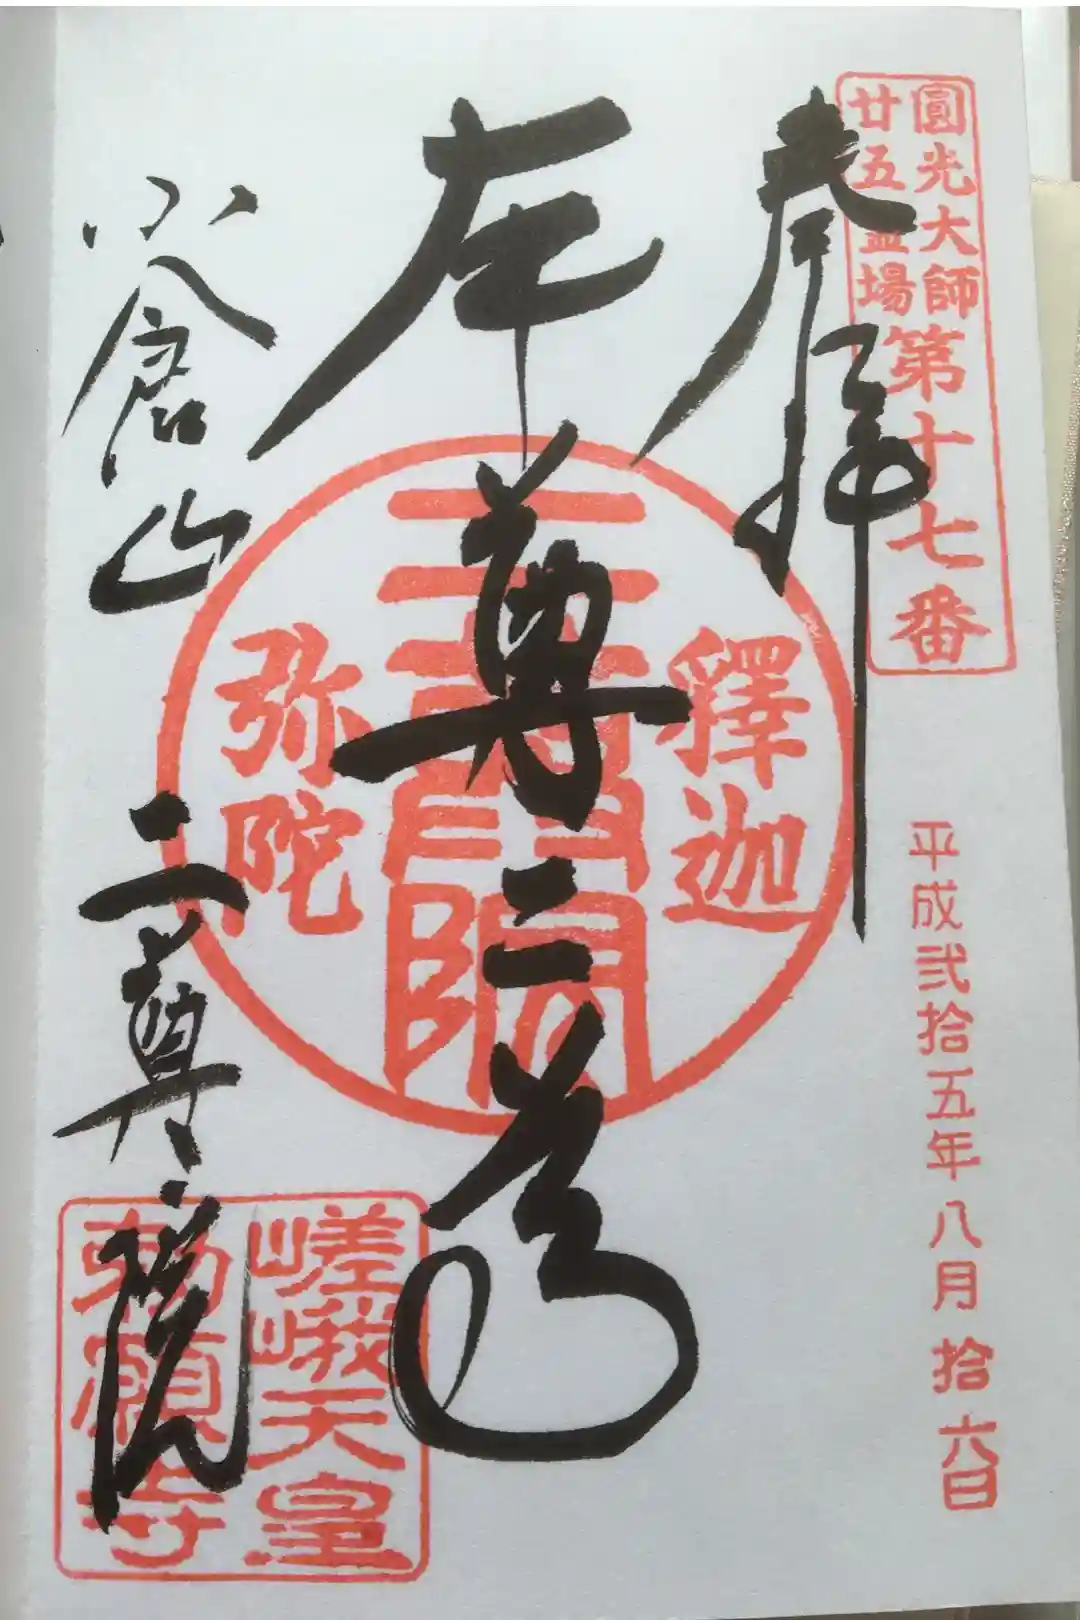 圓光大師
廿五霊場
第十七番
奉拝
平成弐拾五年八月拾六日
本尊二尊
釋迦
二尊院
弥陀
小倉山
二尊院
嵯峨天皇
勅願寺